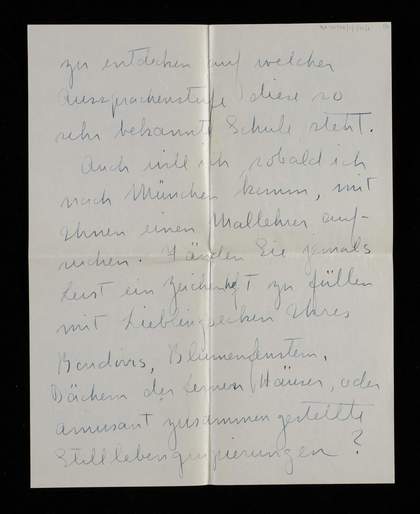 zu entdecken auf welcher
Aussprachenstufe diese so
sehr bekannte Schule steht.
Auch will ich, sobald ich
nach München komm, mit
Ihnen einen Mallehrer auf-
suchen. Fänden Sie jemals
Lust ein Zeichenheft zu füllen
mit Lieblingsecken Ihres
Boudoirs, Blumenfenstern,
Dächern der fernen Häuser, oder
amusant zusammengestellte
Stilllebengruppierungen?